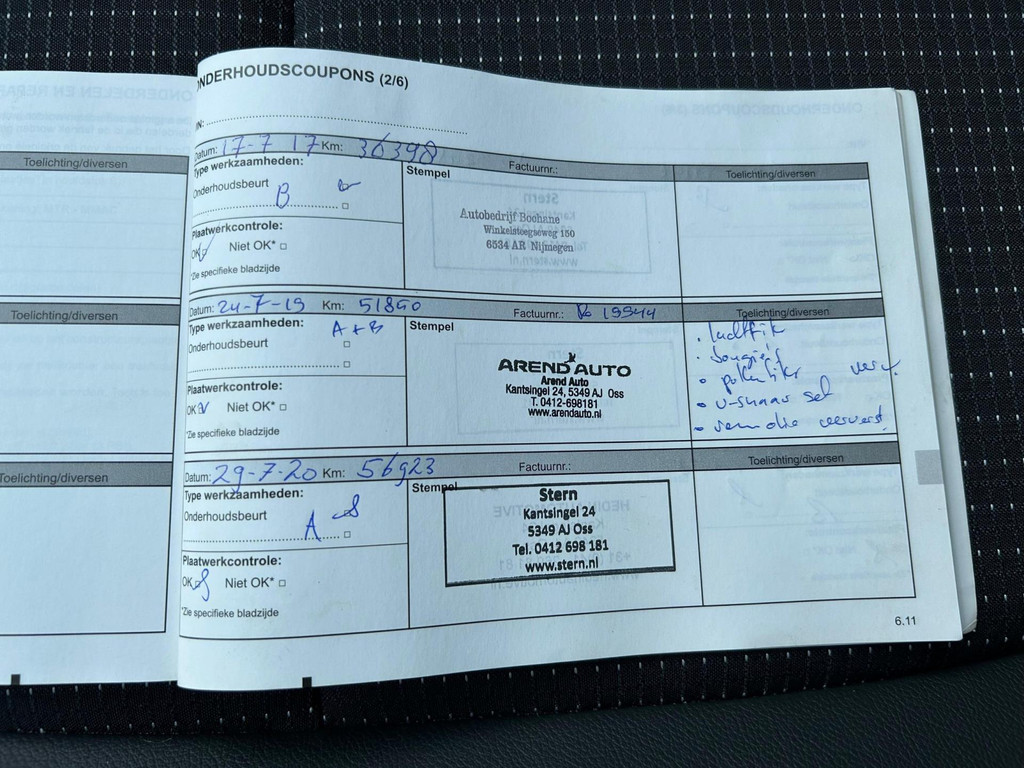 Toelichting/diversen
Toelichting/diversen
Toelichting/diversen
ONDERHOUDSCOUPONS (2/6)
Datum: 17-7 17 Km: 36398 Factuurnr.: Toelichting/diversen
Type werkzaamheden:
Stempel
Onderhoudsbeurt
B
Plaatwerkcontrole:
OK Niet OK*
*Zie specifieke bladzijde
Autobedrijf Bochane
Winkelsteegseweg 150
6534 AR Nijmegen
Datum: 24-7-19 Km: 51850 Factuurnr.: 19944 Toelichting/diversen
Type werkzaamheden: A + B
Stempel
Onderhoudsbeurt
Plaatwerkcontrole:
OK Niet OK*
*Zie specifieke bladzijde
AREND AUTO
Arend Auto
Kantsingel 24, 5349 AJ Oss
T. 0412-698181
www.arendauto.nl
• bougies
• pollenfilter
• v-snaar set
• remolie ververst
Datum: 29-7-20 Km: 56923 Factuurnr.: Toelichting/diversen
Type werkzaamheden:
Stempel
Onderhoudsbeurt
A
Plaatwerkcontrole:
OK Niet OK*
*Zie specifieke bladzijde
Stern
Kantsingel 24
5349 AJ Oss
Tel. 0412 698 181
www.stern.nl
6.11